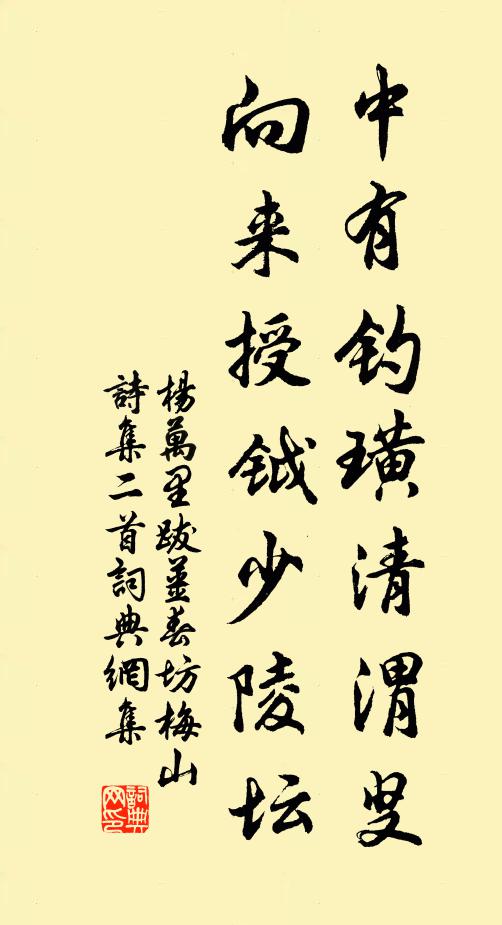 中有钓璜清渭叟
向来授钺少陵坛
楊萬里跋薑春坊梅山
詩集二首詞典網集
詞典
网印